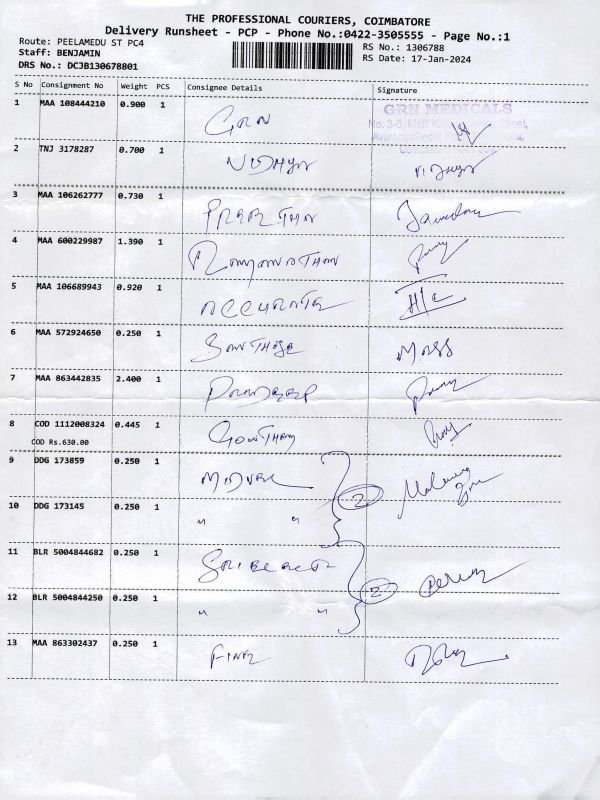 THE PROFESSIONAL COURIERS, COIMBATORE
Delivery Runsheet - PCP - Phone No.:0422-3505555 - Page No.:1
Route: PEELAMEDU ST PC4
RS No.: 1306788
Staff: BENJAMIN
RS Date: 17-Jan-2024
DRS No.: DCJB130678801
S No Consignment No Weight PCS Consignee Details Signature
1 MAA 108444210 0.900 1 GRN
GRN MEDICALS
2 TNJ 3178287 0.700 1 VIDHYA
3 MAA 106262777 0.730 1
4 MAA 600229987 1.390 1 RAMANATHAN
5 MAA 106689943 0.920 1 ACCURATE
6 MAA 572924650 0.250 1 SANTHOSE
7 MAA 863442835 2.400 1
8 COD 1112008324 0.445 1 GOWTHAM
COD Rs.630.00
9 DDG 173859 0.250 1
2
10 DDG 173145 0.250 1 " "
11 BLR 5004844682 0.250 1
2
12 BLR 5004844250 0.250 1 " "
13 MAA 863302437 0.250 1